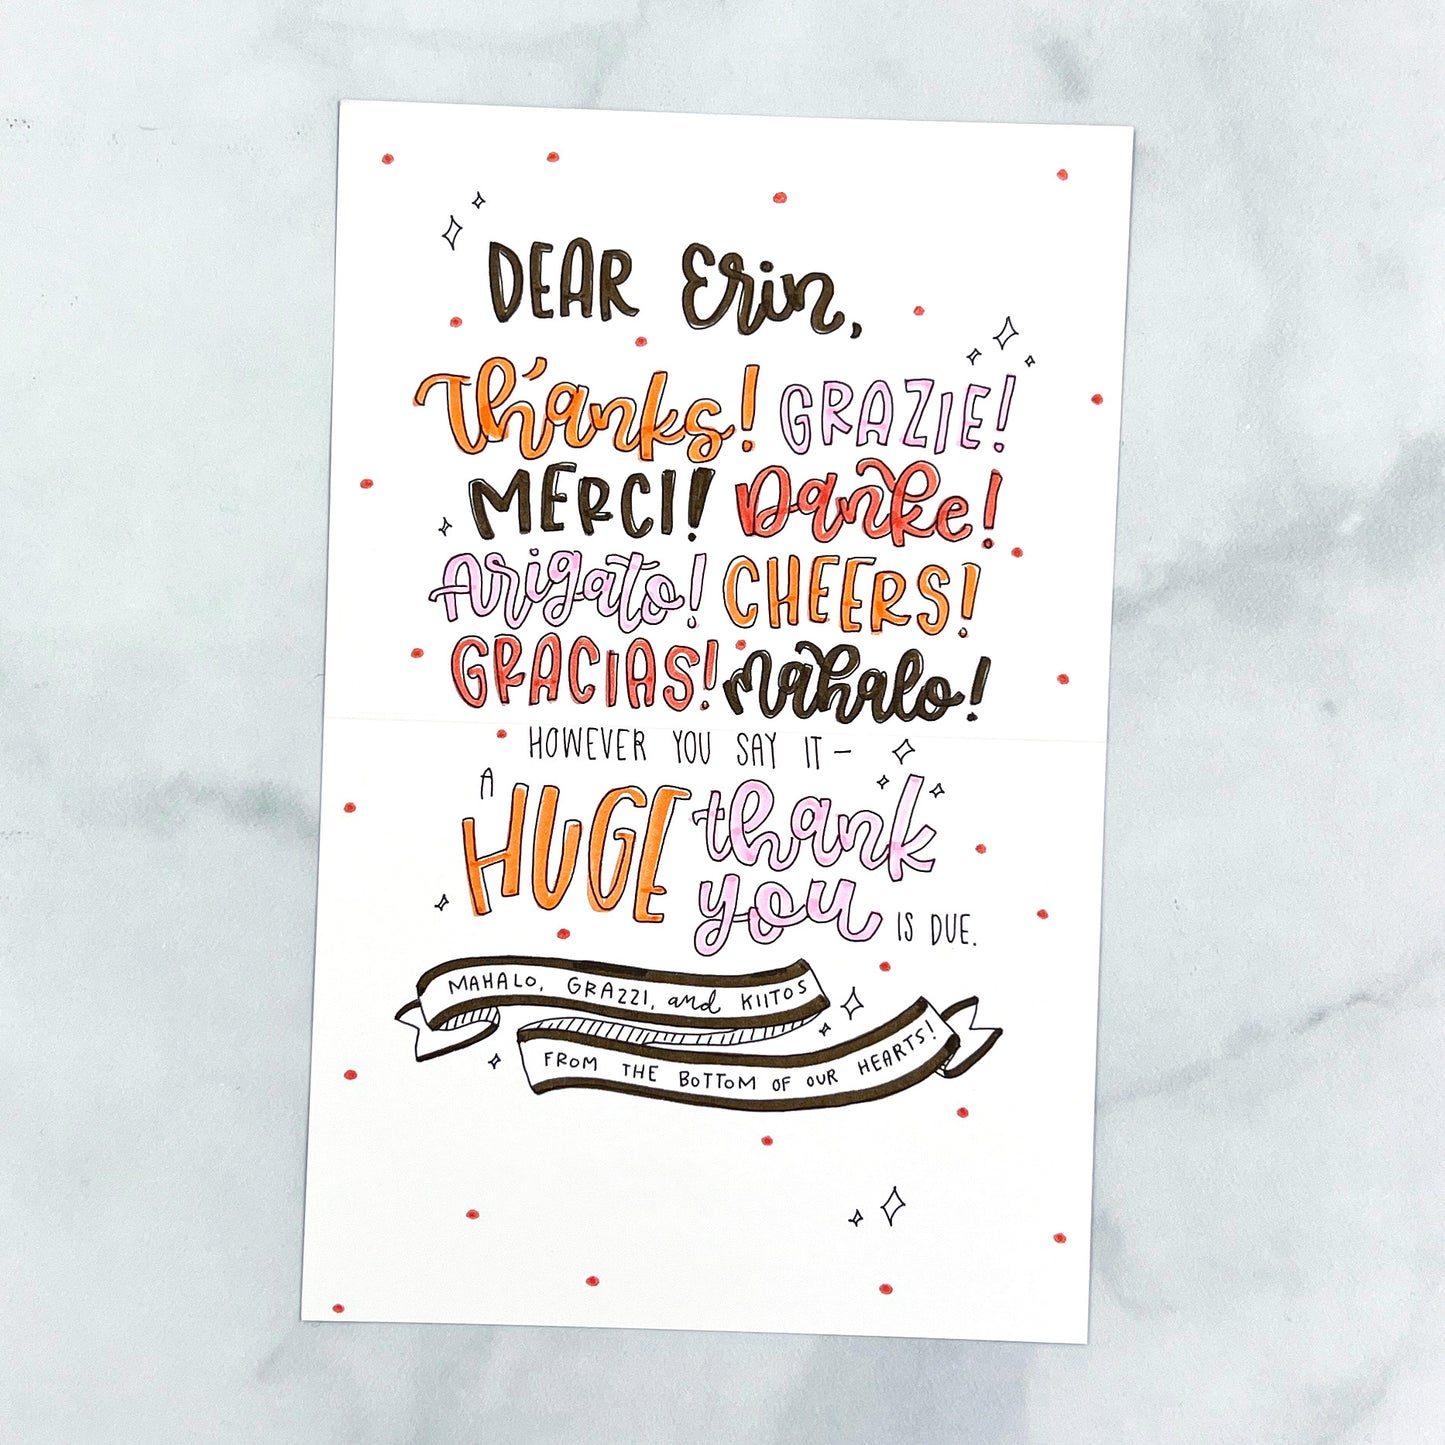 DEAR Erin,
Thanks! GRAZIE!
MERCI! Danke!
Arigato! CHEERS!
GRACIAS! Mahalo!
HOWEVER YOU SAY IT —
A HUGE thank
you IS DUE.
MAHALO, GRAZZI, and KIITOS
FROM THE BOTTOM OF OUR HEARTS!